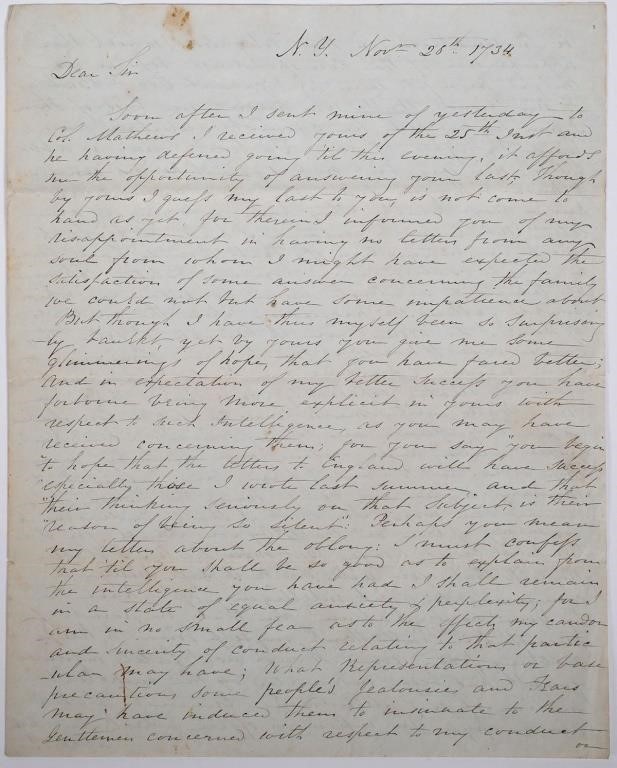 N. Y. Nov.r 28th. 1734.
Dear Sir
Soon after I sent mine of yesterday to
Col. Mathews I received yours of the 25th Inst and
he having deferred going til this evening, it affords
me the opportunity of answering your last, though
by yours I guess my last to you, is not come to
hand as yet for therein I informed you of my
disappointment in having no letters from any
soul from whom I might have expected the
satisfaction of some answer concerning the family
we could not but have some impatience about
But though I have thus myself been so surprising
-ly baulkt, yet by yours you give me some
glimmerings of hope, that you have fared better;
and in expectation of my better success you have
forborne being more explicit in yours with
respect to such Intelligence, as you may have
received concerning them; for you say "you begin
"to hope that the letters to England will have success
"especially those I wrote last summer, and that
"their thinking seriously on that subject, is their
"reason of being so silent": Perhaps you mean
my letters about the oblong: I must confess
that 'til you shall be so good as to explain from
the intelligence you have had I shall remain
in a state of equal anxiety & perplexity; for I
am in no small fear as to the effects my candor
and sincerity of conduct relating to that partic
-ular may have; What Representations or base
precautions some people's Jealousies and Fears
may have induced them to insinuate to the
Gentlemen concerned with respect to my conduct
on